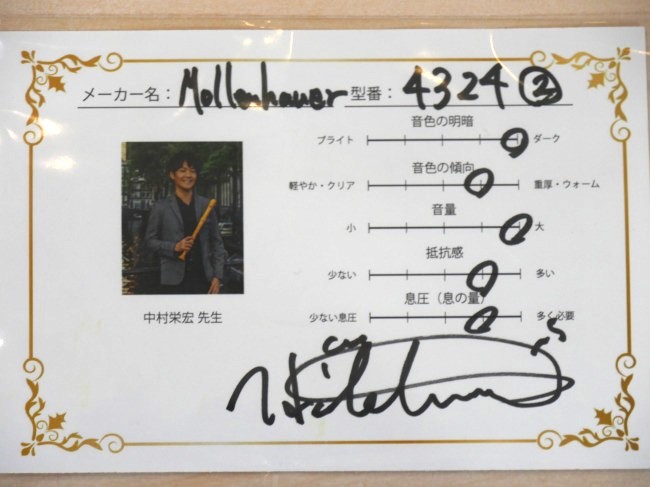 メーカー名： Mollenhauer 型番： 4324 ②
音色の明暗
ブライト ダーク
音色の傾向
軽やか・クリア 重厚・ウォーム
音量
小 大
抵抗感
少ない 多い
息圧（息の量）
少ない息圧 多く必要
中村栄宏 先生